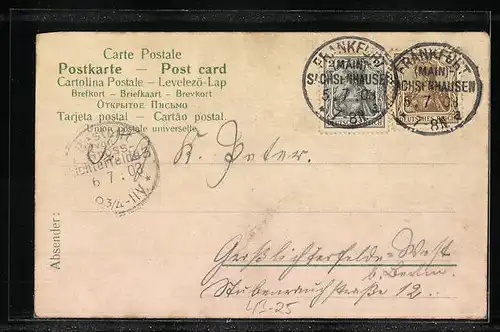 Carte Postale
Postkarte — Post card
Cartolina Postale – Levelező-Lap
Brefkort – Briefkaart – Brevkort
ОТКРЫТОЕ ПИСЬМО
Tarjeta postal – Cartão postal
Union postale universelle
FRANKFURT
(MAIN)
SACHSENHAUSEN
5 7 03
8N
FRANKFURT
(MAIN)
SACHSENHAUSEN
5 7
8N a
Lichterfelde
6 7 03
Peter.
Absender:
Groß Lichterfelde-West
b. Berlin.
Stubenrauchstraße 12.